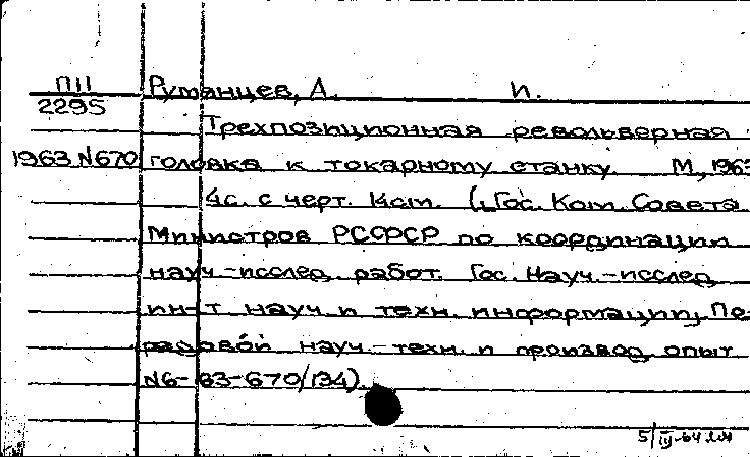 ПII Румянцев, А. И.
2295
Трехпозиционная револьверная
1963 N670 головка к токарному станку. М, 1963
4с. с черт. 1см. (Гос. Ком. Совета
Министров РСФСР по координации
науч-исслед. работ. Гос. Науч.-исслед
ин-т науч и техн. информации, Пе-
радовой науч-техн. и производ. опыт
N6-63-670/134)
5/IV-64